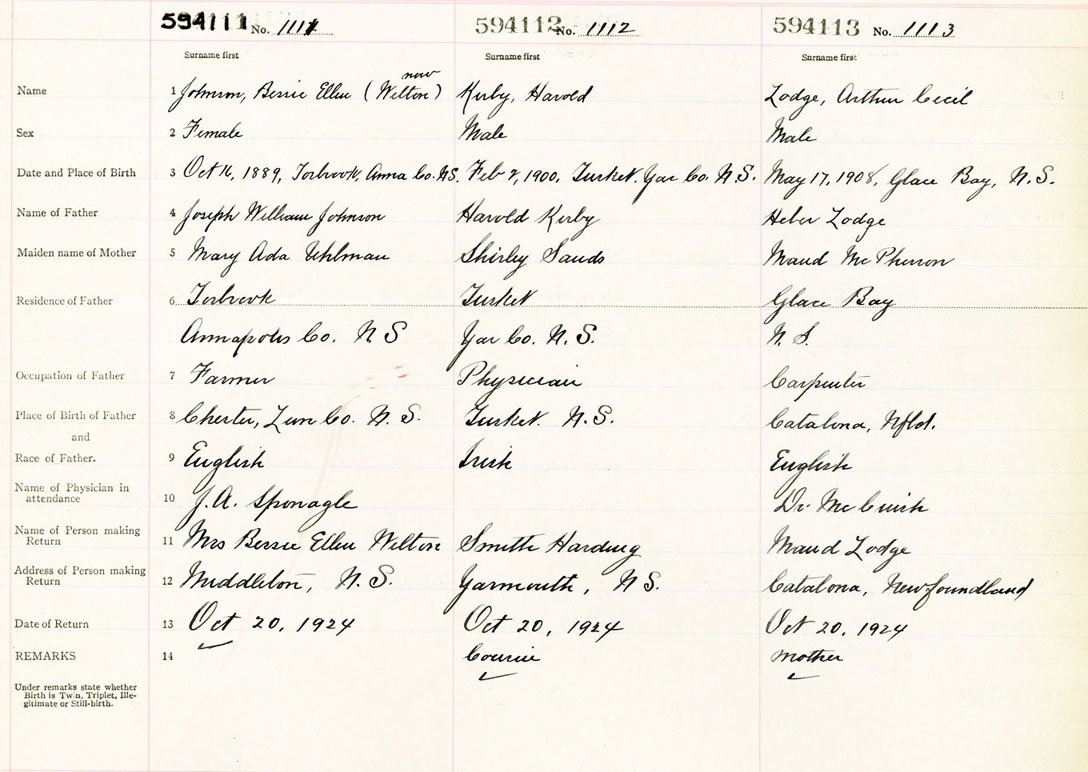 594111 No. 1111 594112 No. 1112 594113 No. 1113
Surname first Surname first Surname first
now
Name 1 Johnson, Bessie Ellen (Welton) Kirby, Harold Lodge, Arthur Cecil
Sex 2 Female Male Male
Date and Place of Birth 3 Oct 16, 1889, Torbrook, Anna Co. N.S. Feb 2, 1900, Tusket. Yar Co. N.S. May 17, 1908, Glace Bay, N.S.
Name of Father 4 Joseph William Johnson Harold Kirby Heber Lodge
Maiden name of Mother 5 Mary Ada Uhlman Shirley Sands Maud McPherson
Residence of Father 6 Torbrook Tusket Glace Bay
Annapolis Co. N S Yar Co. N.S. N.S.
Occupation of Father 7 Farmer Physician Carpenter
Place of Birth of Father 8 Chester, Lun Co. N.S. Tusket. N.S. Catalona, Nfld.
and
Race of Father. 9 English Irish English
Name of Physician in
attendance 10 J.A. Sponagle Dr. Mc
Name of Person making
Return 11 Mrs Bessie Ellen Welton Smith Harding Maud Lodge
Address of Person making
Return 12 Middleton, N.S. Yarmouth, N S. Catalona, Newfoundland
Date of Return 13 Oct 20, 1924 Oct 20, 1924 Oct 20, 1924
REMARKS 14 Cousin Mother
Under remarks state whether
Birth is Twin, Triplet, Ille-
gitimate or Still-birth.